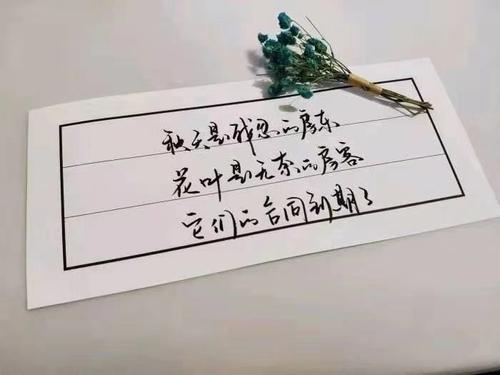 秋天是残忍的房东
花叶是无奈的房客
它们的合同到期了